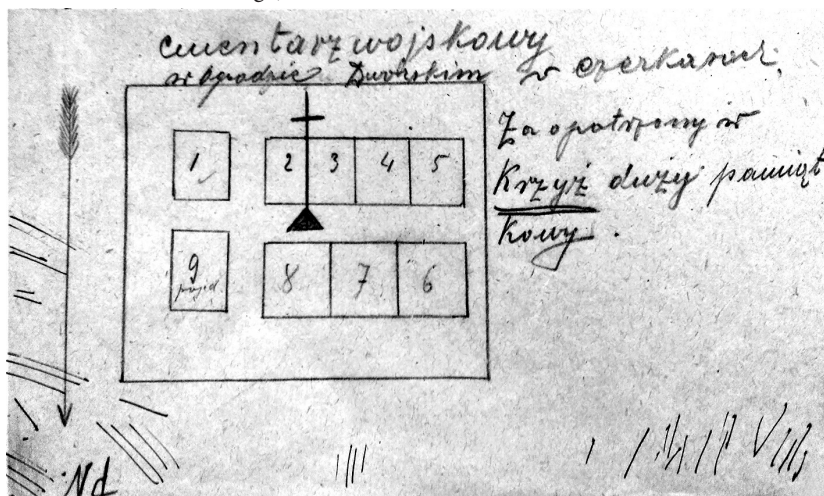 cmentarz wojskowy
w Ogrodzie Dworskim w Czerkasach.
Zaopatrzony w
Krzyż duży pamiąt
kowy.
1 2 3 4 5
9 8 7 6
Nd